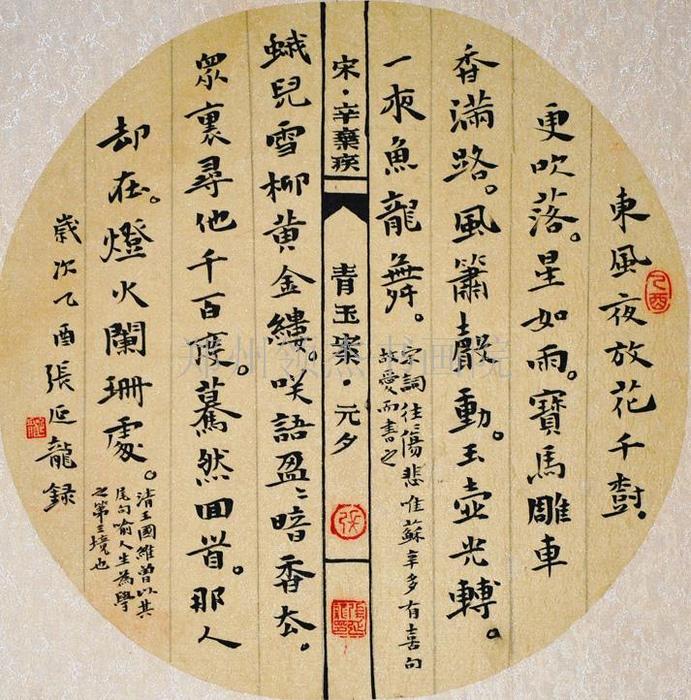 東風夜放花千樹。
更吹落。星如雨。寶馬雕車
香滿路。風簫聲動。玉壺光轉。
一夜魚龍舞。
宋詞往傷悲唯蘇辛多有喜句
故愛而書之
宋·辛棄疾
青玉案·元夕
蛾兒雪柳黃金縷。咲語盈〻暗香去。
眾裏尋他千百度。驀然回首。那人
却在。燈火闌珊處。
清王國維曾以其
尾句喻人生為學
之第三境也
歲次乙酉張延龍録
乙酉